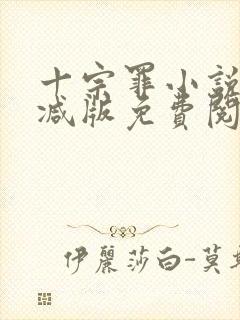 十宗罪小說
減版免費閱
伊麗莎白-莫